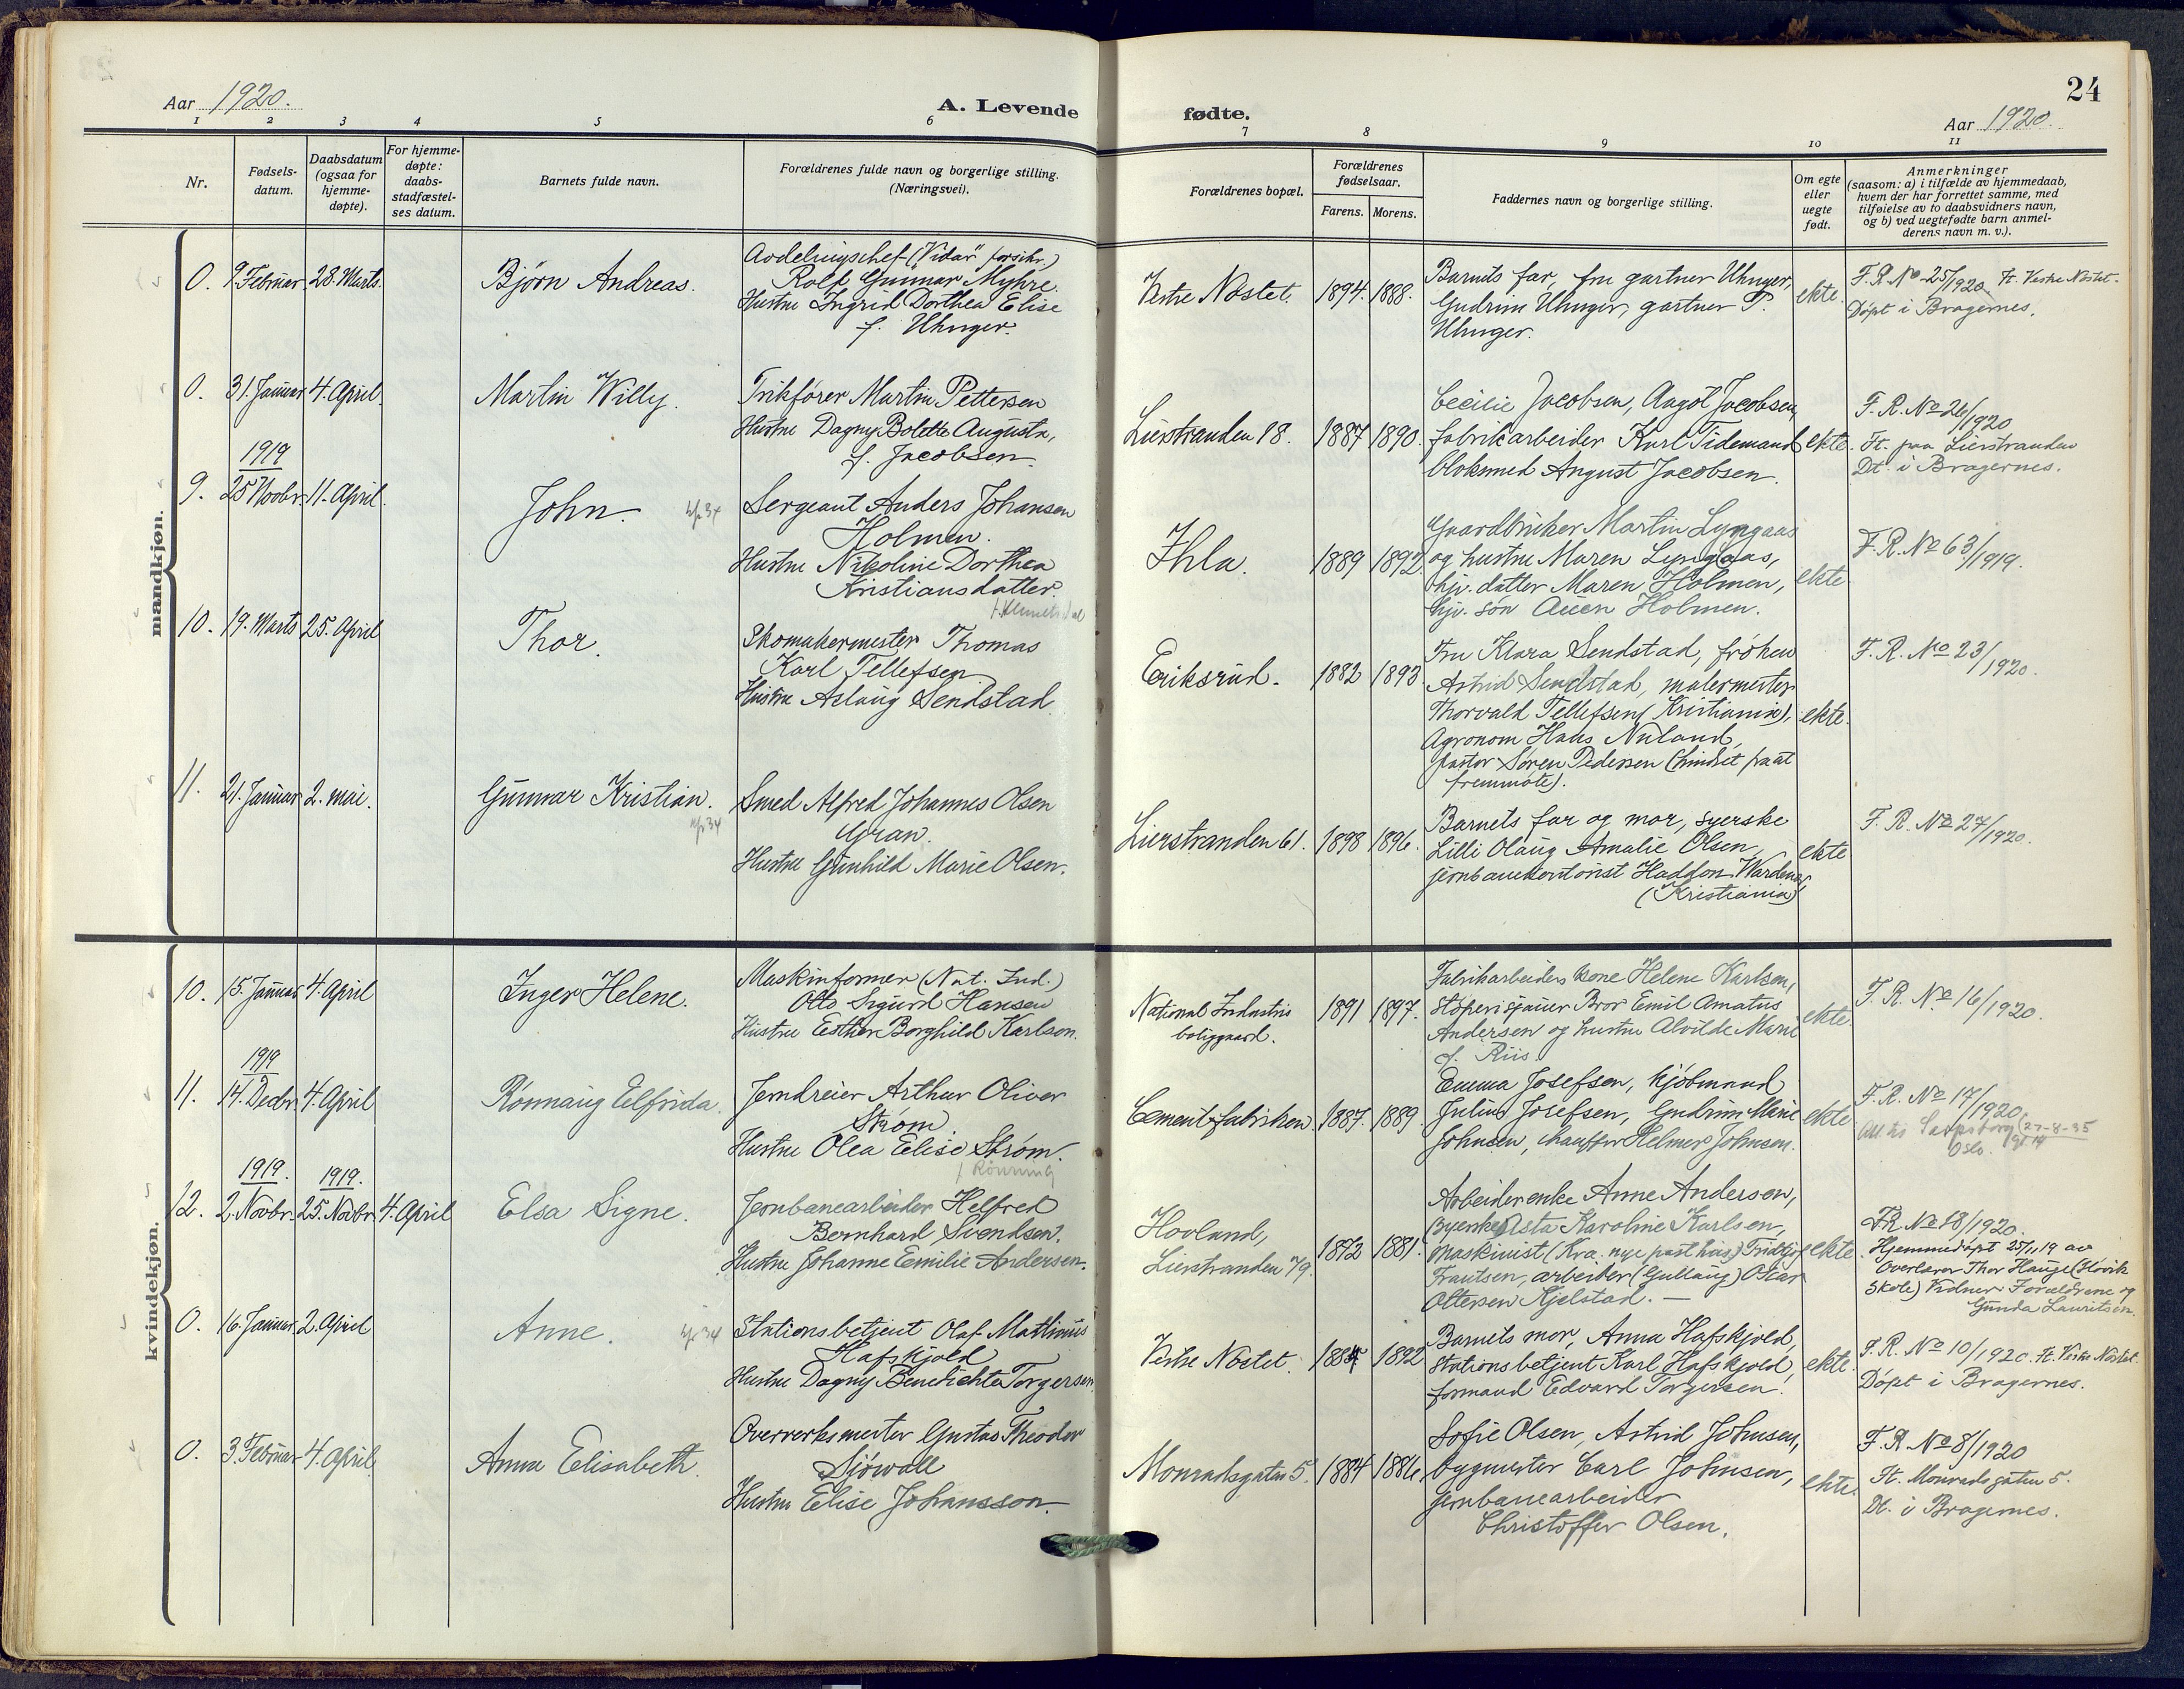 24
Aar 1920.
A. Levende
fødte.
Aar 1920.
1 2 3 4 5 6 7 8 9 10 11
Nr.
Fødsels-
datum.
Daabsdatum
(ogsaa for
hjemme-
døpte).
For hjemme-
døpte:
daabs-
stadfæstel-
ses datum.
Barnets fulde navn.
Forældrenes fulde navn og borgerlige stilling.
(Næringsvei).
Forældrenes bopæl.
Forældrenes
fødselsaar.
Farens. Morens.
Faddernes navn og borgerlige stilling.
Om egte
eller
uegte
født.
Anmerkninger
(saasom: a) i tilfælde av hjemmedaab,
hvem der har forrettet samme, med
tilføielse av to daabsvidners navn,
og b) ved uegtefødte barn anmel-
derens navn m. v.).
mandkjøn.
0. 9. Februar 28. Marts.
Bjørn Andreas.
Avdelingschef ("Vidar" forsikr.)
Rolf Gunnar Myhre.
Hustru Ingrid Dorthea Elise
f. Uhnger.
Vestre Nøstet. 1894. 1888.
Barnets far, fru gartner Uhnger,
Gudrun Uhnger, gartner P.
Uhnger.
ekte.
F. R. No 25/1920 Ft. Vestre Nøstet.
Døpt i Bragernes.
0. 31. Januar 4. April.
Martin Willy.
Trikfører Martin Pettersen
Hustru Dagny Bolette Augusta,
f. Jacobsen.
Lierstranden 18. 1887 1890.
Cecilie Jacobsen, Aagot Jacobsen,
fabrikarbeider Karl Tidemand
bloksmed August Jacobsen.
ekte.
F. R. No 26/1920
Ft. paa Lierstranden
Dt. i Bragernes.
1919
9. 25 Novbr. 11. April.
John.
Sergeant Anders Johansen
Holmen.
Hustru Nikoline Dorthea
Kristiansdatter.
Ihla. 1889 1892
Gaardbruker Martin Lyngaas
og hustru Maren Lyngaas,
hjv. datter Maren Holmen,
hjv. søn Holmen.
ekte
F. R. No 63/1919.
10. 19. Marts 25. April
Thor.
Skomakermester Thomas
Karl Tellefsen
Hustru Aslaug Sendstad
Eriksrud. 1882 1893
Fru Klara Sendstad, frøken
Astrid Sendstad, malermester
Thorvald Tellefsen (Kristiania),
Agronom Hans Nuland,
pastor Søren Pedersen (hindret fra at
fremmøte).
ekte.
F. R. No 23/1920.
11. 21. Januar 2. mai.
Gunnar Kristian.
Smed Alfred Johannes Olsen
Gran.
Hustru Gunhild Marie Olsen.
Lierstranden 61. 1898 1896.
Barnets far og mor, syerske
Lilli Olaug Amalie Olsen,
jernbanekontorist Haddon Wardener
(Kristiania)
ekte
F. R. No 27/1920.
kvindekjøn.
10. 15. Januar 4. April
Inger Helene.
Maskinformer (Nat. Ind.)
Otto Sigurd Hansen
Hustru Esther Borghild Karlson.
National Industris
boliggaard.
1891 1897.
Fabrikarbeiders kone Helene Karlsen,
Støperi Bror Emil Amatus
Andersen og hustru Alvilde Marie
f. Riis.
ekte.
F. R. No 16/1920.
1919
11. 14. Decbr. 4. April
Rønnaug Elfrida.
Jerndreier Arthur Oliver
Strøm.
Hustru Olea Elise Strøm.
f. Rønning
Cementfabriken. 1887. 1889.
Emma Josefsen, kjøbmand
Julius Josefsen, Gudrun Marie
Johnsen, chauffør Helmer Johnsen.
ekte
F. R. No 17/1920.
Att. til Sarpsborg 27-8-35
Oslo.
1919. 1919.
12. 2. Novbr. 25. Novbr. 4. April
Elsa Signe.
Jernbanearbeider Helfred
Bernhard Svendsen.
Hustru Johanne Emilie Andersen.
Hovland,
Lierstranden 79
1872 1881.
Arbeiderenke Anne Andersen,
Syerske Asta Karoline Karlsen,
maskinist (Kra. nye posthus) Fridtjof
Frantsen, arbeider (Gullaug) Oskar
Ottersen Kjelstad.
ekte.
F.R. No 18/1920.
Hjemmedøpt 25/11 19 av
Overlærer Thor Hauge (Høvik
Skole) Vidner: Forældrene og
Gunda Lauritsen
0. 16. Januar 2. April
Anne.
Stationsbetjent Olaf Mathinius
Hafskjold
Hustru Dagny Benedichte Torgersen.
Vestre Nøstet. 1892
Barnets mor, Anna Hafskjold,
Stationsbetjent Karl Hafskjold,
formand Edvard Torgersen.
ekte.
F. R. No 10/1920. Ft. Vestre Nøstet.
Døpt i Bragernes.
0. 3. Februar 4. April.
Anna Elisabeth.
Oververksmester Gustav Theodor
Sjøwall
Hustru Elise Johansson.
Monradsgaten 5. 1884 1886.
Sofie Olsen, Astrid Johnsen,
bygmester Carl Johnsen,
jernbanearbeider
Christoffer Olsen.
ekte.
F. R. No 8/1920
Ft. Monradsgaten 5.
Dt. i Bragernes.